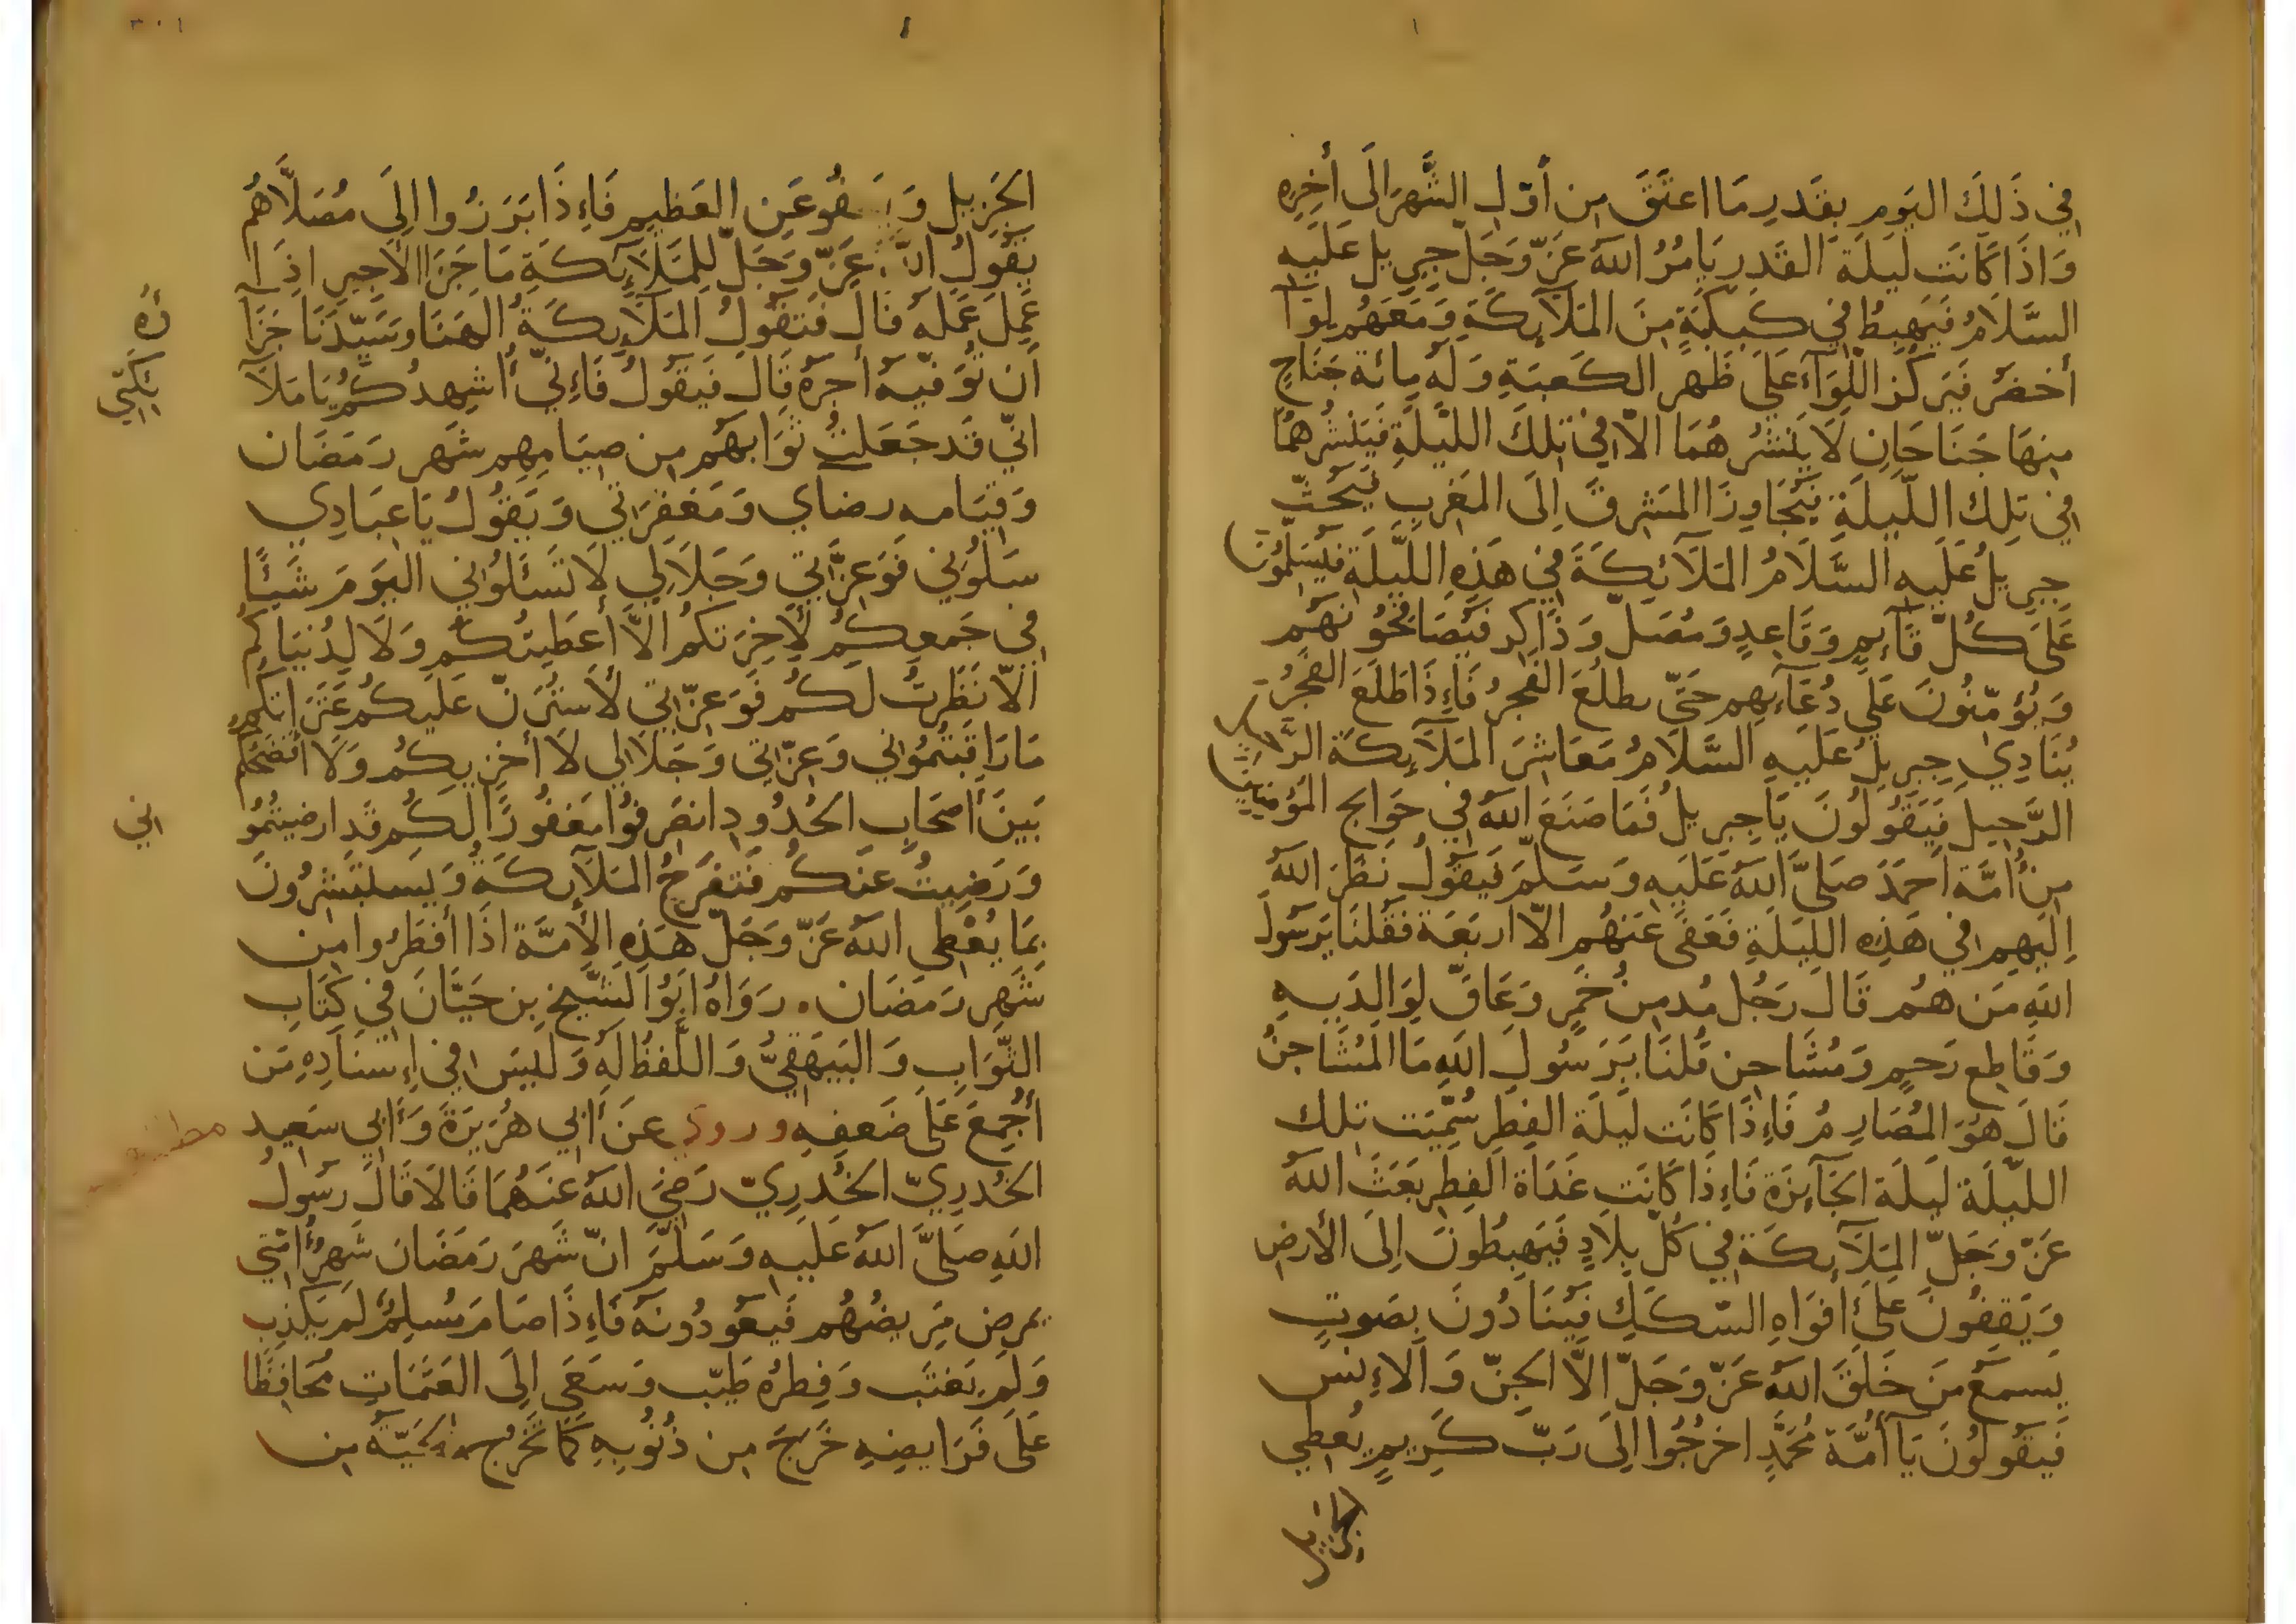 في ذَلِكَ اليَومِ بِقَدرِ مَا اعتَقَ مِن أَوّلِ الشَّهرِ الَى أخِرِهِ
وَاذَا كَانَت لَيلَةَ القَدرِ يَامُرُ اللهُ عَزّ وَجَلّ جِبرِيل عَلَيهِ
السَّلَامُ فَيَهبِطُ في كَبكَبَةٍ مِنَ المَلَآئِكَةِ وَمَعَهُم لِوَآ
أخضَر فَيَركُز اللّوَآءَ عَلَى ظَهرِ الكَعبَةِ وَلَه مِائة جَنَاحٍ
مِنهَا جَنَاحَانِ لَا يَنشُرُهُمَا الّا في تِلكَ اللّيلَةِ فَيَنشُرهُمَا
في تِلكَ اللّيلَةِ فَيُجَاوِزَا المَشرِقَ اِلَى المَغرِبِ فَيَحُثّ
جِبرِيلُ عَلَيهِ السَّلَامُ المَلَآئِكَةَ في هَذِهِ اللّيلَةِ فَيُسَلِّمُونَ
عَلَى كُلّ قَآئِمٍ وَقَاعِدٍ وَمُصَلّ وَذَاكِر فَيُصَافِحُونَهُم
وَيُؤَمّنُونَ عَلَى دُعَآءِهِم حَتّى يطلُعَ الفَجرُ فَاءِذَا طَلَعَ الفَجرُ
يُنَادِي جِبرِيلُ عَلَيهِ السَّلَامُ مَعَاشِرَ المَلَآئِكَةَ
الرَّحِيل فَيَقُولُونَ يَا جِبرِيلُ فَمَا صَنَعَ اللهُ في حَوَايجِ المُؤمِنِينَ
مِن أُمّة اَحمَدَ صَلَّى اللهُ عَلَيهِ وَسَلّمَ فَيَقُولُ نَظَرَ اللهُ
اِلَيهِم في هَذِهِ اللّيلَةِ فَعَفَى عَنهُم الّا اربَعَة فَقُلنَا يَرَسُولَ
اللهِ مَن هُم قَالَ رَجُل مُدمِن خَمرٍ وَعَاقّ لِوَالِدَيهِ
وَقَاطِع رَحِمٍ وَمُشَاحِن قُلنَا يَرَسُولَ اللهِ مَا المُشَاحِنُ
قَالَ هُوَ المُصَارِمُ فَاءِذَا كَانَت لَيلَة الفِطرِ سُمِّيَت تِلكَ
اللّيلَة لَيلَة الجَآئِزَة فَاءِذَا كَانَت غَدَاة الفِطرِ بَعَثَ اللهُ
عَزّ وَجَلّ المَلَآئِكَة في كُلّ بِلَادٍ فَيَهبِطُونَ اِلَى الأرضِ
وَيَقِفُونَ عَلَى أفوَاهِ السّكَكِ فَيُنَادُونَ بِصَوتٍ
يَسمَعُ مَن خَلَقَ اللهُ عَزّ وَجَلّ الّا الجِنّ وَالاءِنس
فَيَقُولُونَ يَا أُمّةَ مُحَمّدٍ اخرُجُوا اِلَى رَبّ كَرِيمٍ يُعطِي
الجزيل
الجَزِيل وَيَعفُو عَن العَظِيمِ فَاءِذَا بَرَزُوا اِلَى مُصَلَّاهُم
يَقُولُ اللهُ عَزّ وَجَلّ لِلمَلَآئِكَةِ مَا جَزَا الأجِيرِ اِذَا
عَمِلَ عَمَلَه قَالَ فَتَقُولُ المَلَآئِكَةُ الهَنَا وَسَيّدَنَا جَزَا
اَن تُوَفّيه أجرَهُ قَالَ فَيَقُولُ فَاءِنّي أُشهِدُكُم يَا مَلَآ
انّي قَد جَعَلتُ ثَوَابهُم مِن صِيَامِهِم شَهر رَمَضَان
وَقِيَامه رضَاي وَمَغفِرَتي وَيَقُولُ يَا عِبَادِي
سَلُوني فَوَعِزَّتي وَجَلَالِي لَا تَسئَلُوني اليَومَ شَيئًا
في جَمعِكُم لأخِرَتكُم الّا أعطَيتُكُم وَلَا لِدُنيَاكُم
الّا نَظَرتُ لَكُم فَوَعِزّتي لَأستُرَنّ عَلَيكُم عَثَرَاتكُم
مَا رَاقَبتُمُوني وَعِزّتي وَجَلَالي لَا أُخزِيكُم وَلَا أفضَحُكُم
بَينَ أصحَابِ الحُدُودِ انصَرِفُوا مَغفُورًا لَكُم قَد ارضَيتُمُو
وَرَضِيتُ عَنكُم فَتَفرَحُ المَلَآئِكَةُ وَيَستَبشِرُونَ
بِمَا يُعطِي اللهُ عَزّ وَجَلّ هَذِهِ الأُمّة اذَا أفطَرُوا مِن
شَهرِ رَمَضَان. رَوَاهُ ابُو الشَّيخِ بن حَيَّانَ في كِتَابِ
الثّوَابِ وَالبَيهَقِيُّ وَاللّفظُ لَهُ وَلَيسَ في اِسنَادِهِ مَن
أُجمِعَ عَلَى ضَعفِهِ وروي عَن أبي هُرَيرَةَ وَأبي سَعِيد
الخُدرِيّ الخُدرِيّ رَضِيَ اللهُ عَنهُمَا قَالَا قَالَ رسُولُ
اللهِ صَلَّى اللهُ عَلَيهِ وَسَلّمَ انّ شَهرَ رَمَضَان شَهرُ أُمّتي
يَمرض مَريضُهُم فَيَعُودُونه فَاءِذَا صَامَ مُسلِمٌ لَم يَكذِب
وَلَم يَغتَب وَفِطرُه طَيّب وَسَعَى اِلَى العَتَمَاتِ مُحَافِظًا
عَلَى فَرَايضِهِ خَرَجَ مِن ذُنُوبِهِ كَمَا تَخرُج الحَيّة مِن
ئكَتي
اني